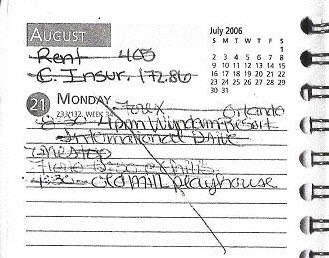 AUGUST
July 2006
S M T W T F S
1
2 3 4 5 6 7 8
9 10 11 12 13 14 15
16 17 18 19 20 21 22
23 24 25 26 27 28 29
30 31
Rent 400
C. Insur. 172.80
21 MONDAY
233/132 WEEK 34
Forex Orlando
4pm Wyndam Resort
International Drive
onestop
4:30 - old mill playhouse